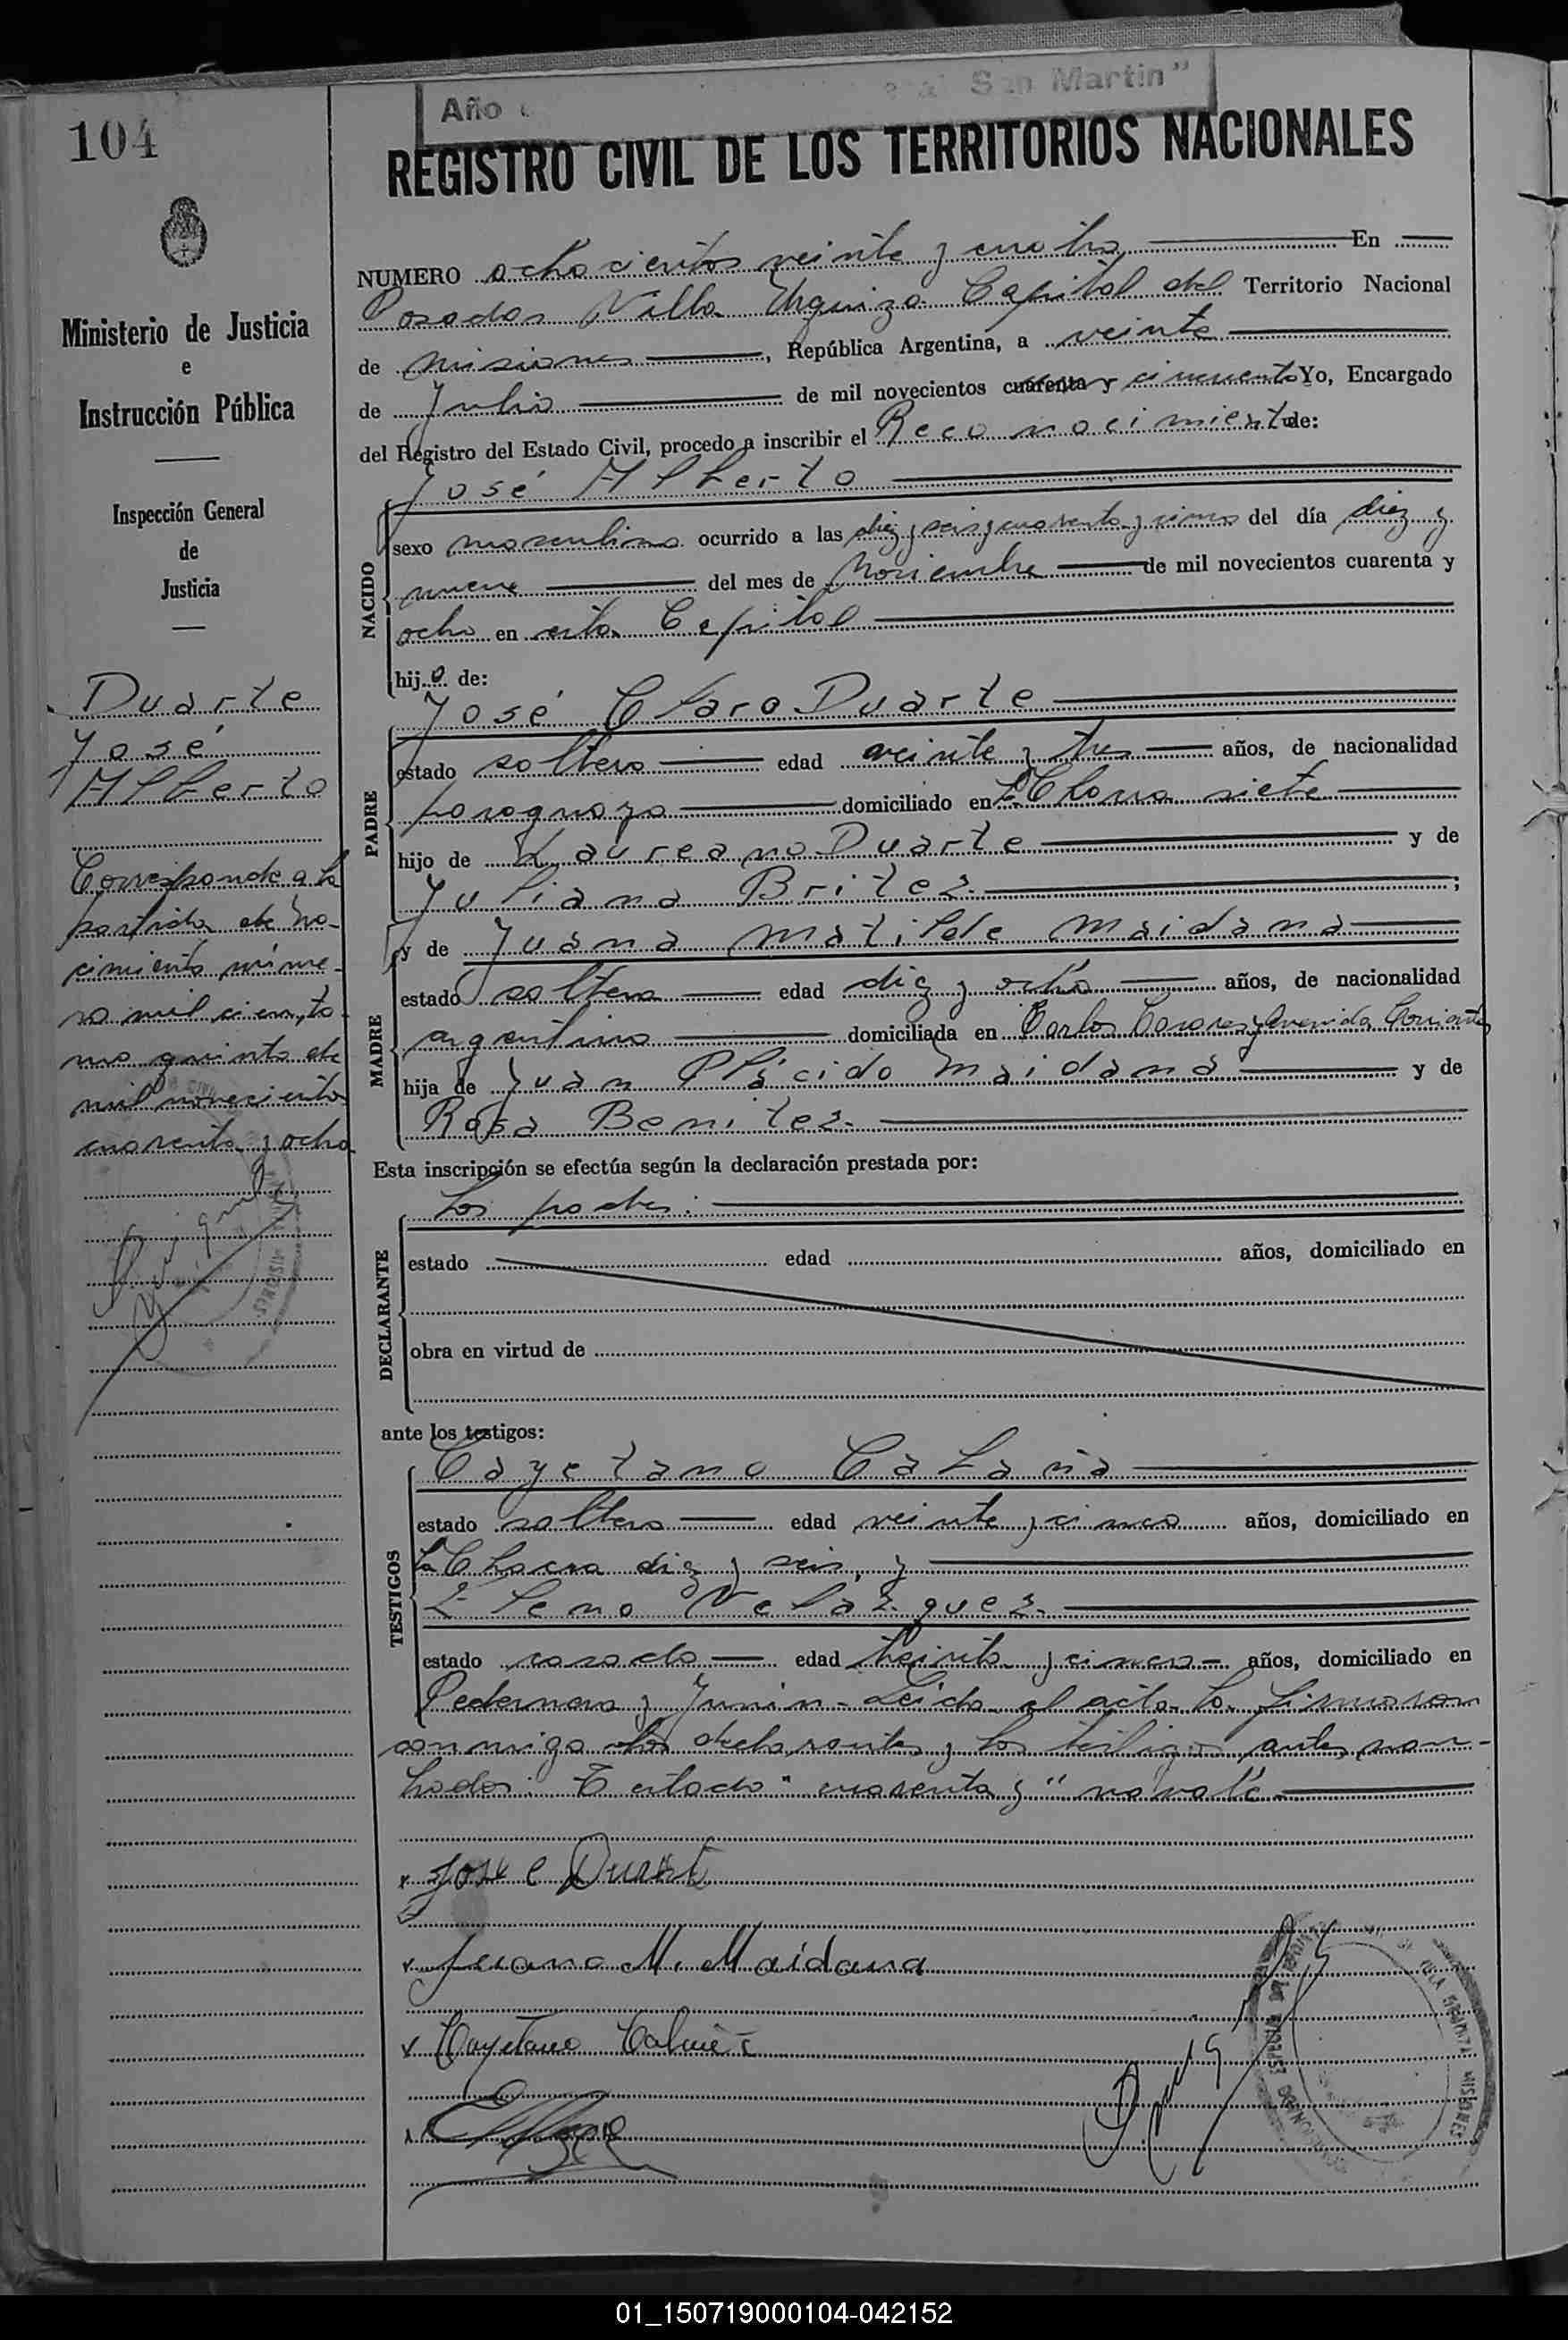 104
Año San Martin"
REGISTRO CIVIL DE LOS TERRITORIOS NACIONALES
Ministerio de Justicia
e
Instrucción Pública
Inspección General
de
Justicia
Duarte
José
Alberto
Corresponde a la
partida de na-
cimiento núme-
ro mil ciento to-
mo quinto de
mil novecientos
cuarenta y ocho
NUMERO ochocientos veinte y cuatro En
Posadas Villa Urquiza Capital del Territorio Nacional
de Misiones, República Argentina, a veinte
de Julio de mil novecientos cuarenta y cincuenta Yo, Encargado
del Registro del Estado Civil, procedo a inscribir el Reconocimiento de:
José Alberto
NACIDO
sexo masculino ocurrido a las diez y seis y cuarenta y cinco del día diez y
nueve del mes de Noviembre de mil novecientos cuarenta y
ocho en esta Capital
hijo de:
José Claro Duarte
PADRE
estado soltero edad veinte y tres años, de nacionalidad
paraguayo domiciliado en La Chacra siete
hijo de Laureano Duarte y de
Juliana Britez ;
y de Juana Matilde Maidana
MADRE
estado soltera edad diez y ocho años, de nacionalidad
argentina domiciliada en Carlos Casares y Avenida Corrientes
hija de Juan Plácido Maidana y de
Rosa Benitez
Esta inscripción se efectúa según la declaración prestada por:
Los padres.
DECLARANTE
estado edad años, domiciliado en
obra en virtud de
ante los testigos:
Cayetano
TESTIGOS
estado soltero edad veinte y cinco años, domiciliado en
La Chacra diez y seis, y
Eleno Velazquez
estado casado edad treinta y cinco años, domiciliado en
Pedernera y Junin - Leida el acta la firmaron
conmigo los declarantes y los testigos antes nom-
brados. Testado "cuarenta y" no vale
Jose C Duarte
Juana M. Maidana
Cayetano
MISIONES
01_150719000104-042152